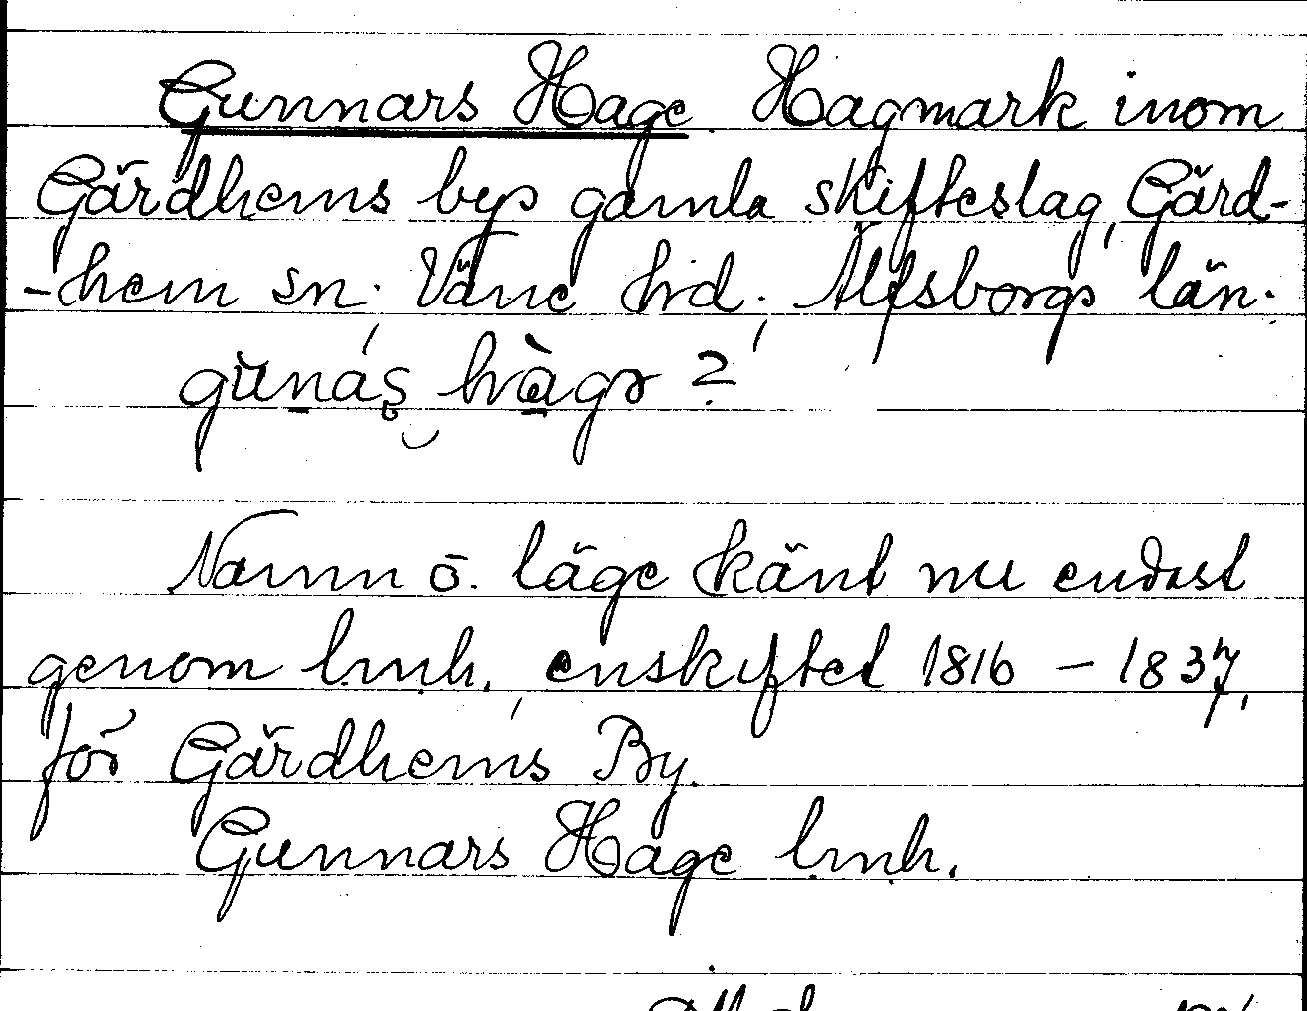 Gunnars Hage Hagmark inom
Gärdhems bys gamla skifteslag, Gärd-
-hem sn. Väne hd, Älfsborgs län.
gùnáş hàgə ?
Namn o. läge känt nu endast
genom lmh., enskiftet 1816 - 1837,
för Gärdhems By.
Gunnars Hage lmh.